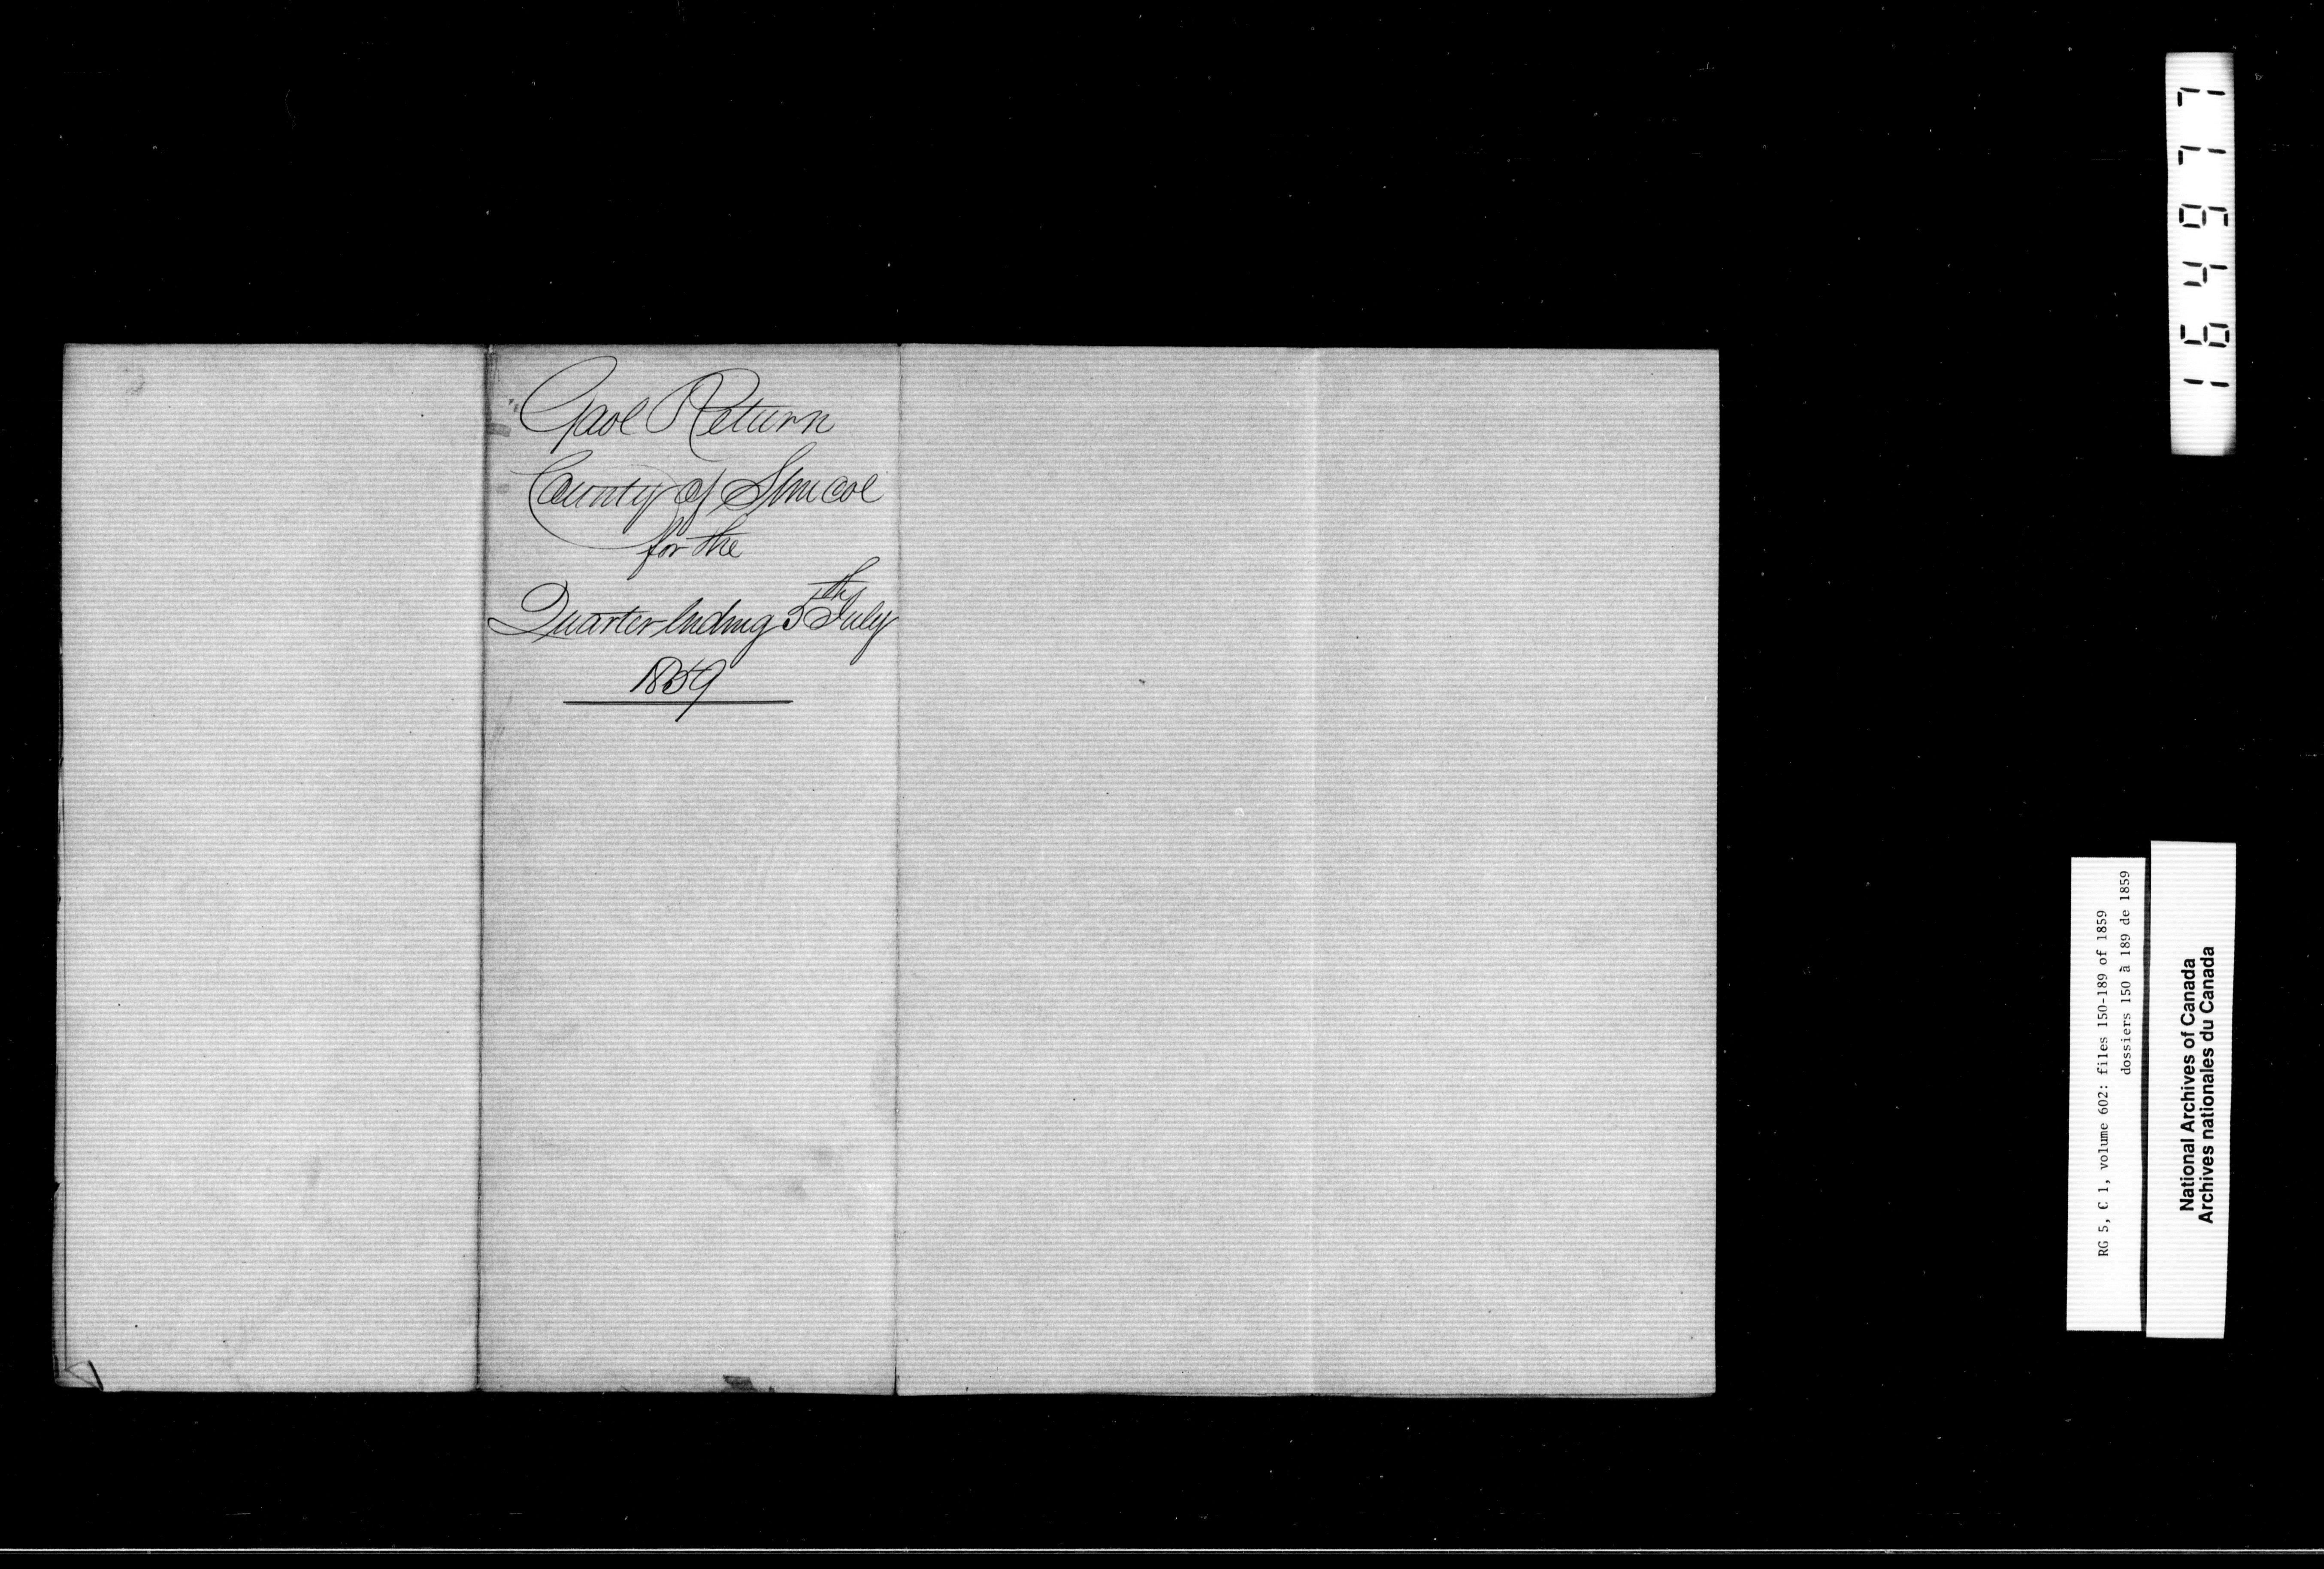 Gaol Return
County of Simcoe
for the
Quarter ending 5th July
1859
164977
RG 5, C 1, volume 602: files 150-189 of 1859
dossiers 150 à 189 de 1859
National Archives of Canada
Archives nationales du Canada